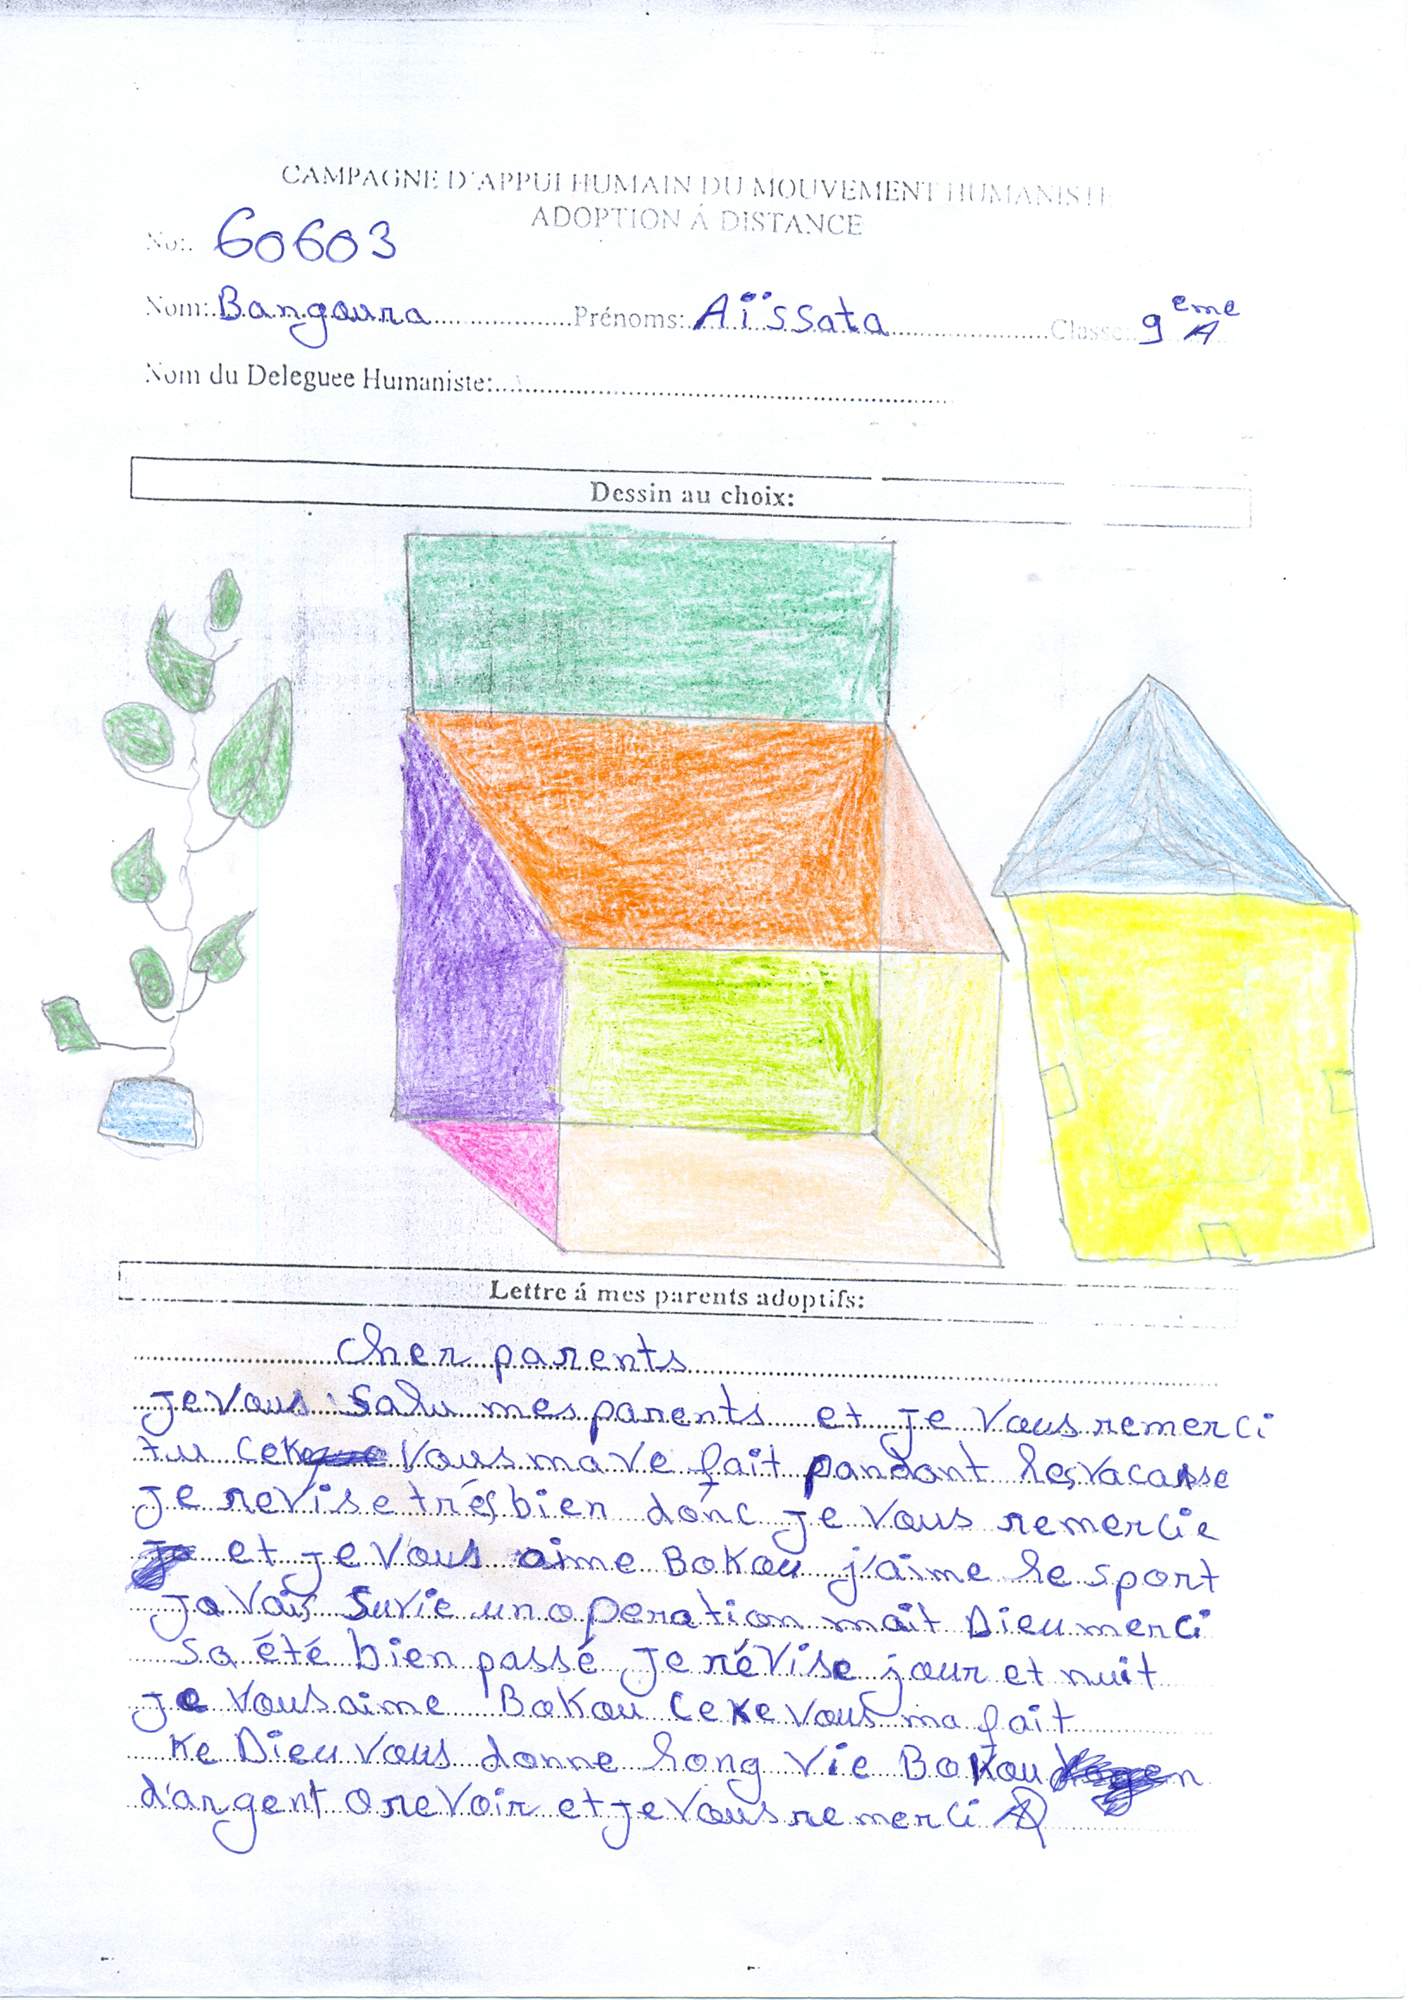 CAMPAGNE D'APPUI HUMAIN DU MOUVEMENT HUMANISTE
ADOPTION Á DISTANCE
No:. 60603
Nom: Bangoura Prénoms: Aïssata Classe: 9eme A
Nom du Deleguee Humaniste:
Dessin au choix:
Lettre á mes parents adoptifs:
Cher parents
je vous salu mes parents et je vous remerci
cek vous mave fait pandant les vacanse
je revise trés bien donc je vous remercie
et je vous aime Bokou j'aime le sport
ja vais suvie un operation mait Dieu merci
sa été bien passé je révise jour et nuit
je vous aime Bokou ceke vous ma fait
ke Dieu vous donne long vie Bokou
d'argent orevoir et je vous remerci